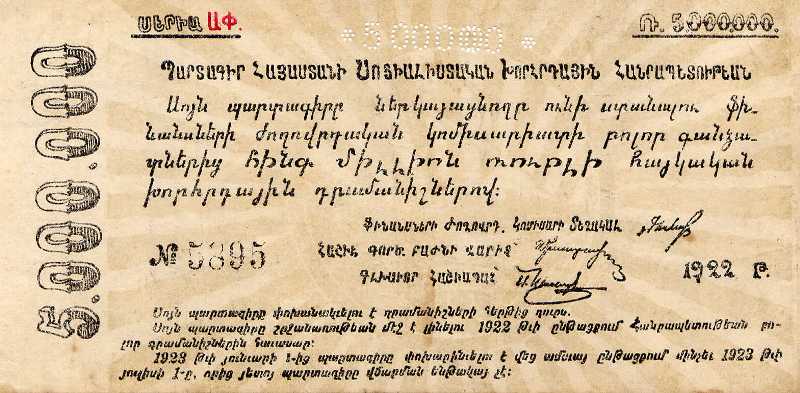 ՍԵՐԻԱ ԱՓ.
* 5000000 *
Ռ. 5.000.000.
5.000.000
ՊԱՐՏԱԳԻՐ ՀԱՅԱՍՏԱՆԻ ՍՈՑԻԱԼԻՍՏԱԿԱՆ ԽՈՐՀՐԴԱՅԻՆ ՀԱՆՐԱՊԵՏՈՒԹԵԱՆ
Սոյն պարտագիրը ներկայացնողը ունի ստանալու Ֆի-
նանսների Ժողովրդական կոմիսարիատի բոլոր գանձա-
րաններից հինգ միլլիոն ռուբլի հայկական
խորհրդային դրամանիշներով:
ՖԻՆԱՆՍՆԵՐԻ ԺՈՂՈՎՐԴ. ԿՈՄԻՍԱՐԻ ՏԵՂԱԿԱԼ
№ 5895
ՀԱՇԻՒ ԳՈՐԾ. ԲԱԺՆԻ ՎԱՐԻՉ
ԳԼԽԱՒՈՐ ՀԱՇԻԱՊԱՀ
1922 թ.
Սոյն պարտագիրը փոխանակւելու է դրամանիշների հերթից դուրս.
Սոյն պարտագիրը շրջանառութեան մէջ է լինելու 1922 թւի ընթացքում Հանրապետութեան բո-
լոր դրամանիշներին հաւասար:
1923 թւի յունւարի 1-ից պարտագիրը փոխարինւելու է վեց ամսւայ ընթացքում մինչեւ 1923 թւի
յուլիսի 1-ը, որից յետոյ պարտագիրը վճարման ենթակայ չէ: